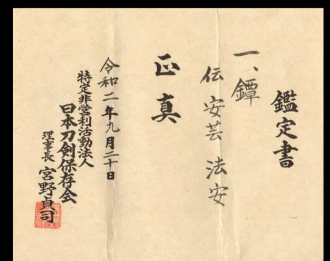 鑑定書
一、鐔
伝 安芸 法安
正真
令和二年九月二十日
特定非営利活動法人
日本刀剣保存会
理事長 宮野貞司